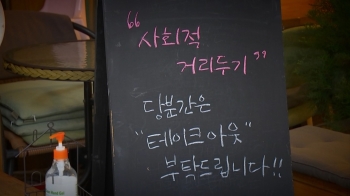 “사회적
거리두기”
당분간은
“테이크아웃”
부탁드립니다!!